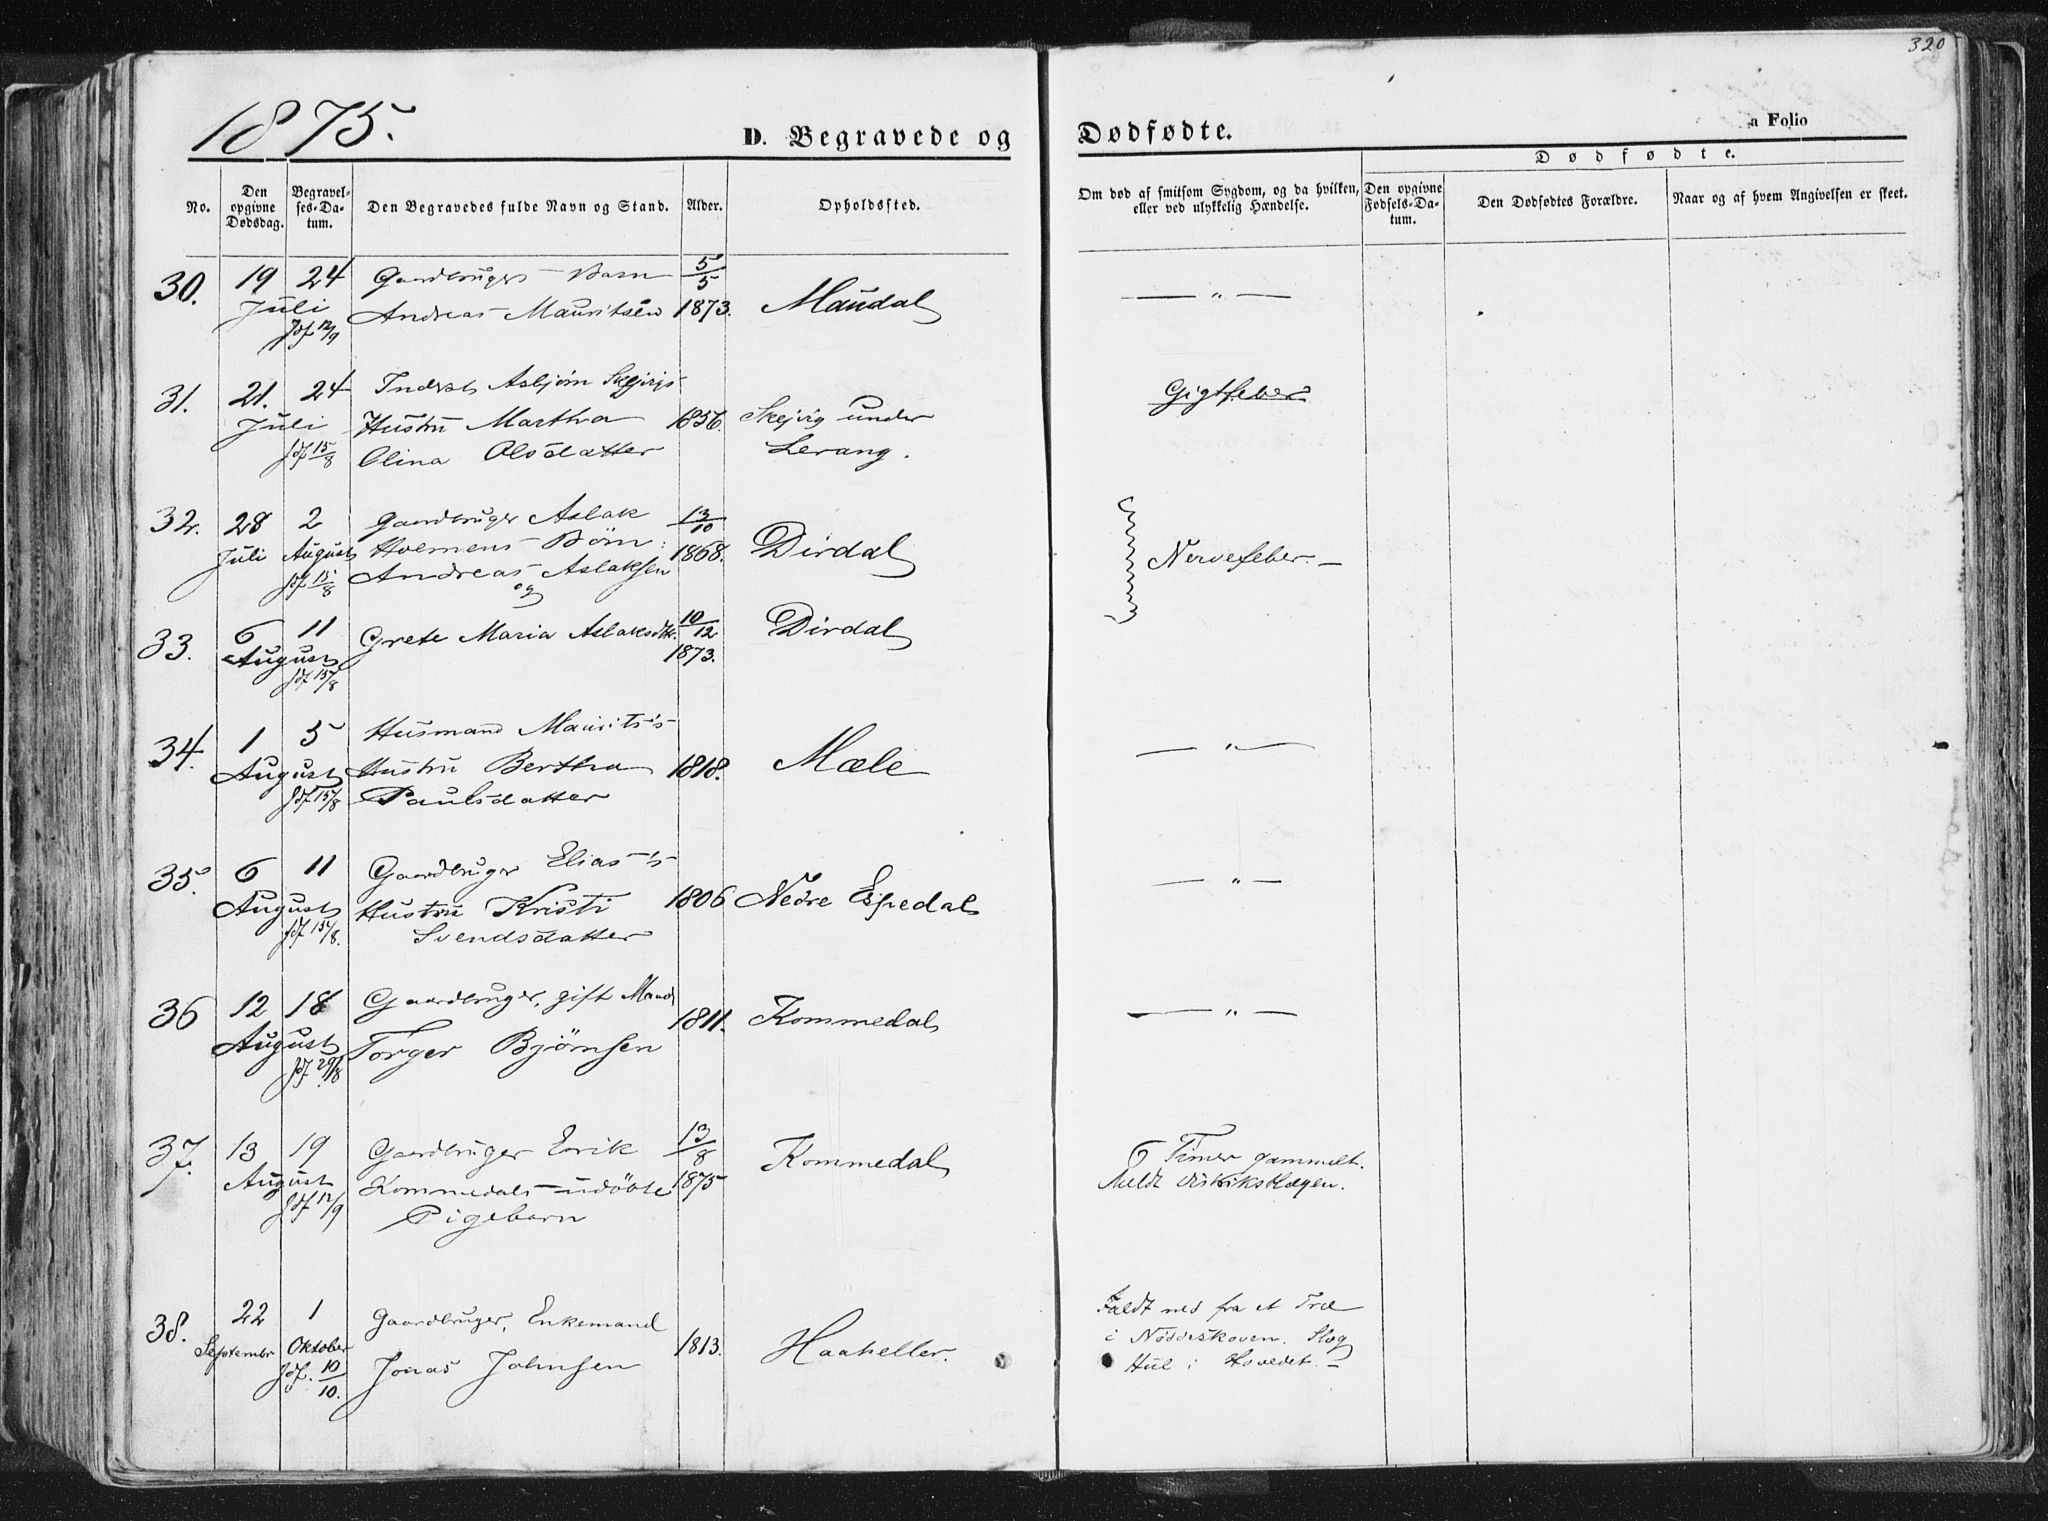 320
1875.
D. Begravede og Dødfødte.
a Folio
No.
Den opgivne Dødsdag.
Begravelses-Datum.
Den Begravedes fulde Navn og Stand.
Alder.
Opholdssted.
Om død af smitsom Sygdom, og da hvilken, eller ved ulykkelig Hændelse.
Dødfødte.
Den opgivne Fødsels-Datum.
Den Dødfødtes Forældre.
Naar og af hvem Angivelsen er skeet.
30. 19 24 Gaardbrugers Barn 5/5
Juli Andreas Mauritsen 1873. Maudal — " —
Jdf 12/9
31. 21. 24 Inderst Asbjørn Skejvigs
Juli Hustru Martha 1856. Skejvig under Gigtfeber
Jdf 15/8 Olina Olsdatter Lerang.
32. 28 2 Gaardbruger Aslak 13/10
Juli August Holmens Børn: 1868. Dirdal Nervefeber. —
Jdf 15/8 Andreas Aslaksen
og
33. 6 11 Grete Maria Aslaksdtr. 10/12 Dirdal
August 1873.
Jdf 15/8
34. 1 5 Husmand Maurits's
August Hustru Bertha 1818. Mæle — " —
Jdf 15/8 Paulsdatter
35. 6 11 Gaardbruger Elias's
August Hustru Kristi 1806 Nedre Espedal — " —
Jdf 15/8. Svendsdatter
36 12 18 Gaardbruger, gift Mand
August Torger Bjørnsen 1811. Kommedal — " —
Jdf 29/8
37. 13 19 Gaardbruger Enrik 13/8 Kommedal 6 Timer gammelt.
August Kommedals udøbte 1875 Meldt Distriktslægen.
Jdf 12/9 Pigebarn
38. 22 1 Gaardbruger, Enkemand Faldt ned fra et Træ
Septembr Oktober Jonas Johnsen 1813. Haaheller. i Nøddeskoven. Slog
Jdf. 10/10. Hul i Hovedet. —